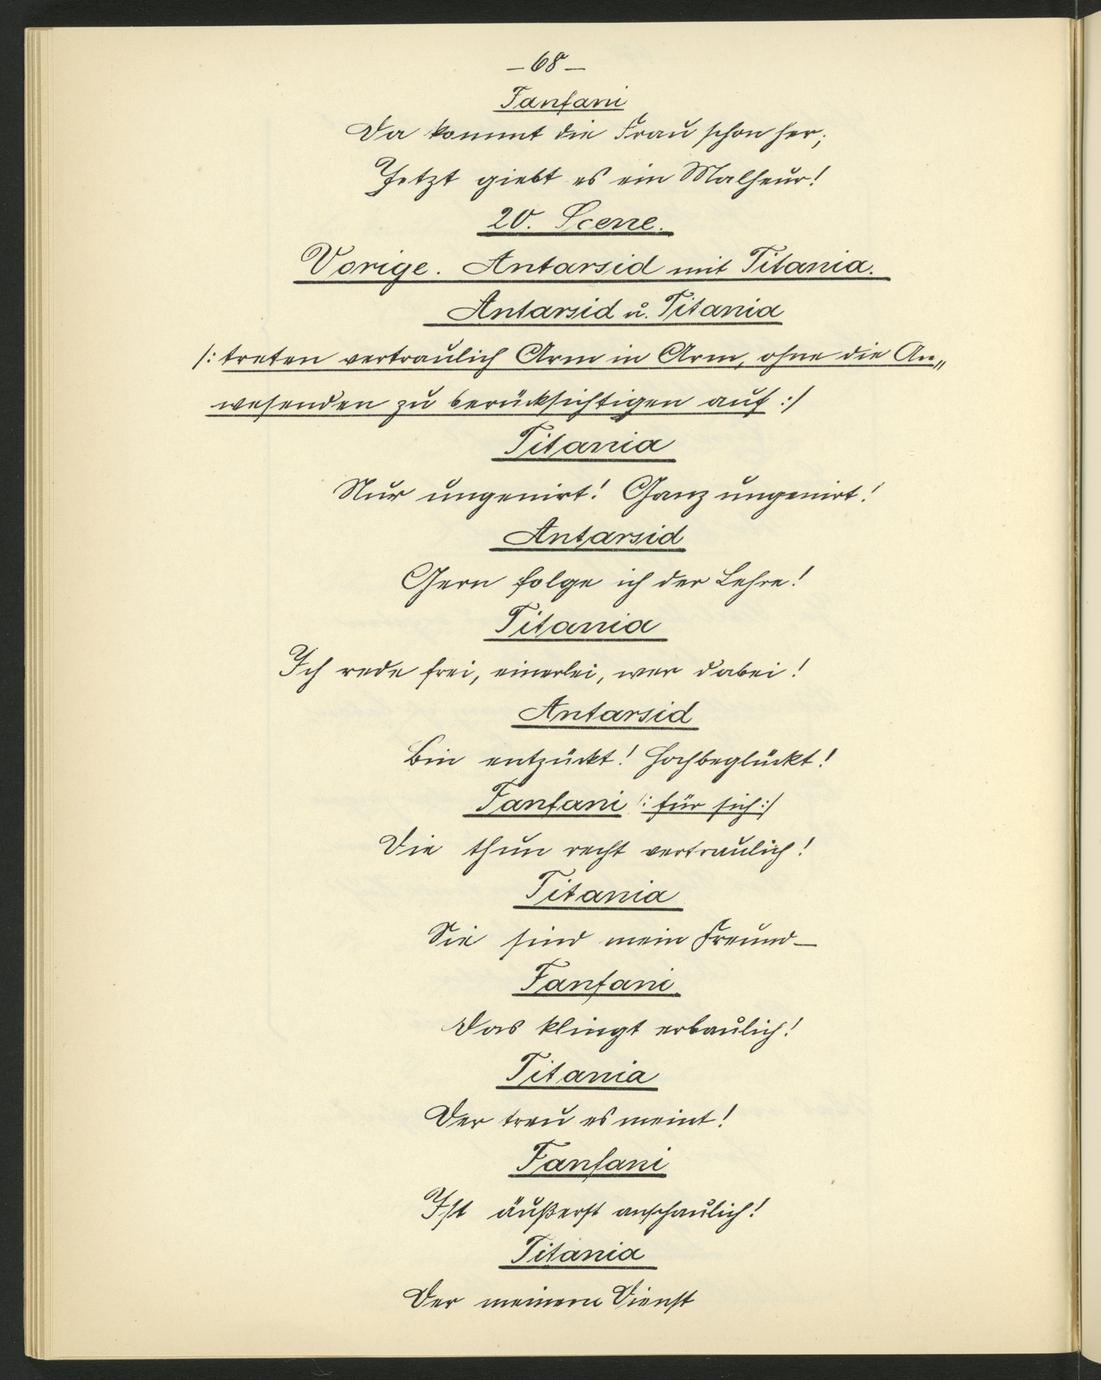 – 68 –
Fanfani
Da kommt die Frau schon her;
Jetzt giebt es ein Malheur!
20. Scene.
Vorige. Antarsid mit Titania.
Antarsid u. Titania
/: treten vertraulich Arm in Arm, ohne die An„
wesenden zu berücksichtigen auf :/
Titania
Nur ungenirt! Ganz ungenirt!
Antarsid
Gern folge ich der Lehre!
Titania
Ich rede frei, einerlei, wer dabei!
Antarsid
Bin entzückt! Hochbeglückt!
Fanfani /: für sich :/
Die thun recht vertraulich!
Titania
Sie sind mein Freund –
Fanfani
Das klingt erbaulich!
Titania
Der treu es meint!
Fanfani
Ist äußerst anschaulich!
Titania
Der meinem Dienst